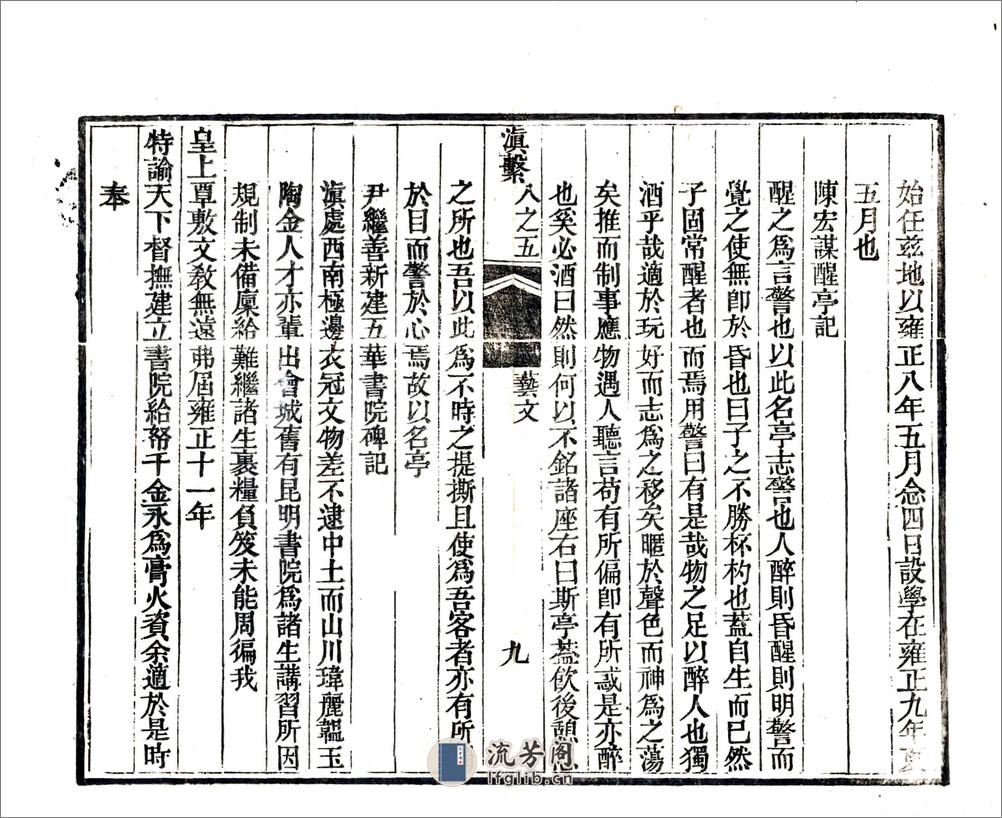 始任兹地以雍正八年五月念四日設學在雍正九年夏
五月也
陳宏謀醒亭記
醒之為言警也以此名亭志警也人醉則昏醒則明警而
覺之使無卽於昏也曰子之不勝杯杓也蓋自生而已然
子固常醒者也而焉用警曰有是哉物之足以醉人也獨
酒乎哉適於玩好而志為之移矣暱於聲色而神為之蕩
矣推而制事應物遇人聽言苟有所偏卽有所惑是亦醉
也奚必酒曰然則何以不銘諸座右曰斯亭蓋飲後憩息
滇繫 八之五 藝文 九
之所也吾以此為不時之提撕且使為吾客者亦有所
於目而警於心焉故以名亭
尹繼善新建五華書院碑記
滇處西南極邊衣冠文物差不逮中土而山川瑋麗韞玉
陶金人才亦輩出會城舊有昆明書院為諸生講習所因
規制未備廩給難繼諸生裹糧負笈未能周徧我
皇上覃敷文敎無遠弗屆雍正十一年
特諭天下督撫建立書院給帑千金永為膏火資余適於是時
奉
流芳阁
lfglib.cn